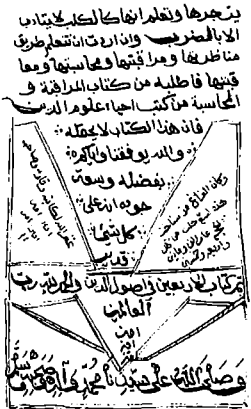 يزجرها وتعلم انها كالكلب لا يتادب
الا بالضرب وان اردت ان تتعلم طريق
مناظرتها ومراقبتها ومحاسبتها ومعا
قبتها فاطلبه من كتاب المراقبة و
المحاسبة من كتب احياء علوم الدين
فان هذا الكتاب لا يحتمله
والله يوفقنا واياكم
بفضله وسعة
جوده انه على
كل شيء
قدير
تم كتاب الاربعين في اصول الدين والحمد لله رب
العالمين
امين
وصلى الله على سيدنا محمد وعلى آله وصحبه وسلم